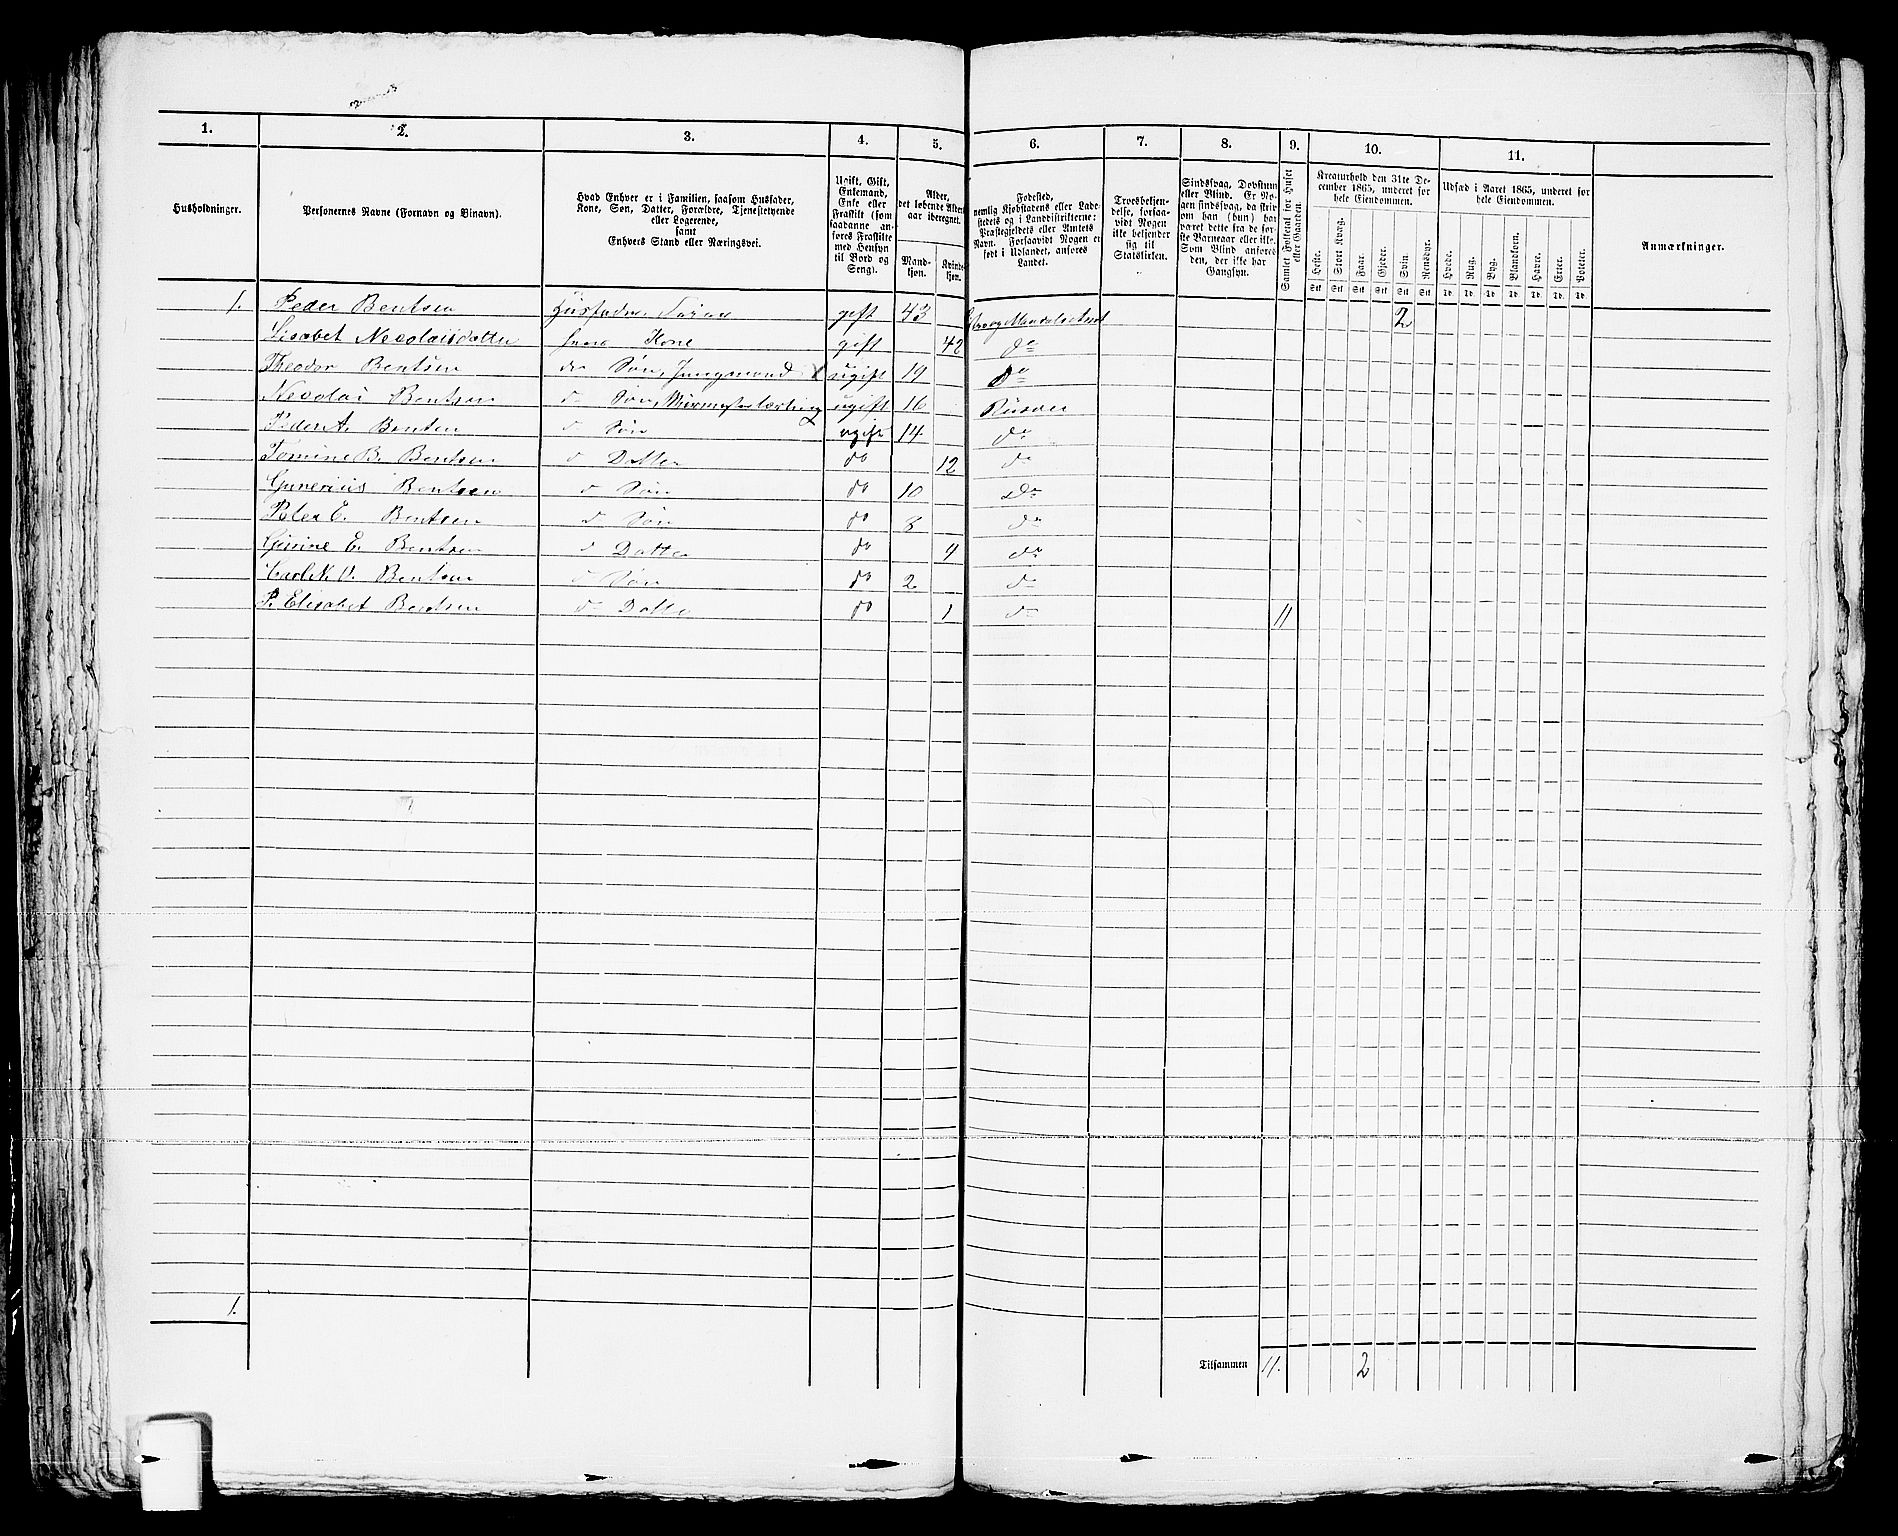 1. 2. 3. 4. 5. 6. 7. 8. 9. 10. 11.
Husholdninger.
Personernes Navne (Fornavn og Binavn).
Hvad Enhver er i Familien, saasom Husfader, Kone, Søn, Datter, Forældre, Tjenestetyende eller Logerende, samt Enhvers Stand eller Næringsvei.
Ugift, Gift, Enkemand, Enke eller Fraskilt (som saadanne anføres Fraskilte med Hensyn til Bord og Seng).
Alder, det løbende Aldersaar iberegnet.
Mandkjøn. Kvindekjøn.
Fødested, nemlig Kjøbstadens eller Ladestedets og i Landdistrikterne: Præstegjeldets eller Amtets Navn. Forsaavidt Nogen er født i Udlandet, anføres Landet.
Troesbekjendelse, forsaavidt Nogen ikke bekjender sig til Statskirken.
Sindssvag, Døvstum eller Blind. Er Nogen sindssvag, da skrives om han (hun) har været dette fra de første Barneaar eller ikke. Som Blind anføres den, der ikke har Gangsyn.
Samlet Folketal for Huset eller Gaarden.
Kreaturhold den 31te December 1865, underet for hele Eiendommen.
Heste. Stort Kvæg. Faar. Gjeder. Sviin. Rensdyr.
Udsæd i Aaret 1865, underet for hele Eiendommen.
Hvede. Rug. Byg. Blandkorn. Havre. Erter. Poteter.
Anmærkninger.
1. Peder Bentsen gift 43 2
Lisabet Necolaisdatter Kone gift 42 do
Theodor Bentsen Søn, Jungmand ugift 19 do
Necolai Bentsen do Søn, ugift 16 Risøer
Peder A. Bentsen do Søn ugift 14 do
Tomine B. Bentsen do Datter do 12 do
Gunerius Bentsen do Søn do 10 do
Peter E. Bentsen do Søn do 8 do
Gusine E. Bentsen do Datter do 4 do
Carl N. O. Bentsen do Søn do 2 do
P. Elisabet Bentsen do Datter do 1 do 11
1.
Tilsammen 11. 2